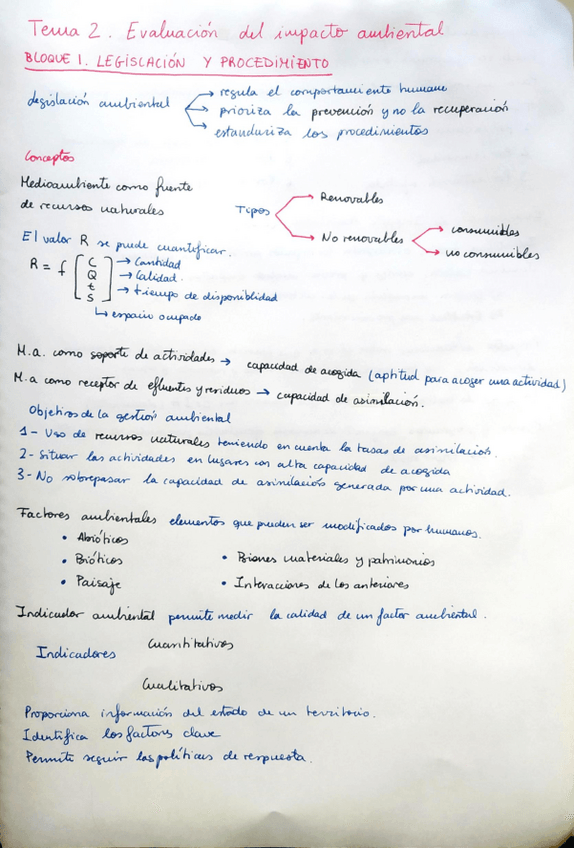 Tema 2. Evaluación del impacto ambiental
BLOQUE 1. LEGISLACIÓN Y PROCEDIMIENTO
Legislación ambiental
→ regula el comportamiento humano
→ prioriza la prevención y no la recuperación
→ estandariza los procedimientos
Conceptos
Medioambiente como fuente
de recursos naturales
Tipos
→ Renovables
→ No renovables
→ consumibles
→ no consumibles
El valor R se puede cuantificar.
R = f [
C → Cantidad
Q → Calidad.
t → tiempo de disponiblidad
S ]
↳ espacio ocupado
M.a. como soporte de actividades → capacidad de acogida (aptitud para acoger una actividad)
M.a como receptor de efluentes y residuos → capacidad de asimilación.
Objetivos de la gestión ambiental
1- Uso de recursos naturales teniendo en cuenta la tasas de asimilación.
2- Situar las actividades en lugares con alta capacidad de acogida
3- No sobrepasar la capacidad de asimilación generada por una actividad.
Factores ambientales elementos que pueden ser modificados por humanos.
• Abióticos
• Bióticos
• Paisaje
• Bienes materiales y patrimonios
• Interacciones de los anteriores
Indicador ambiental permite medir la calidad de un factor ambiental.
Indicadores
Cuantitativos
Cualitativos
Proporciona información del estado de un territorio.
Identifica los factores clave
Permite seguir las políticas de respuesta.